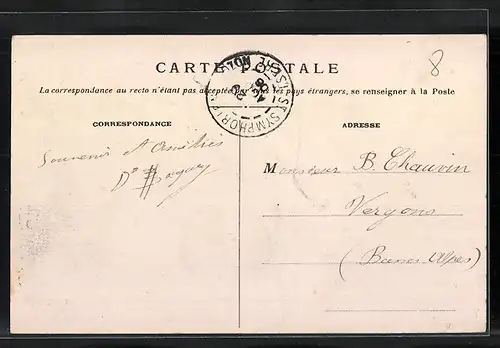 8
CARTE POSTALE
La correspondance au recto n'étant pas acceptée par tous les pays étrangers, se renseigner à la Poste
CORRESPONDANCE
ADRESSE
Souvenir et Amitiés
Dr
Monsieur B. Chauvin
Vergons
(Basses Alpes)
ST SYMPHORIEN
OZON
ISÈRE